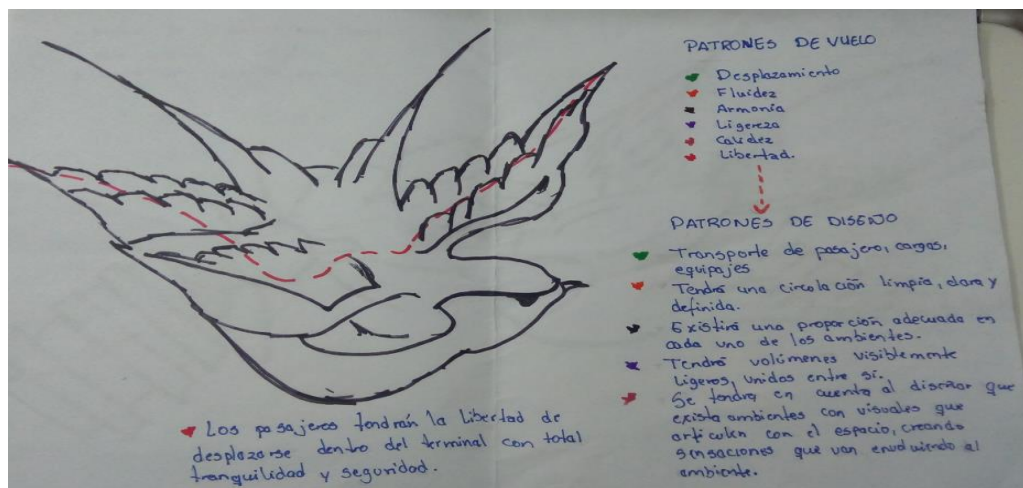 PATRONES DE VUELO
Desplazamiento
Fluidez
Armonía
Ligereza
Calidez
Libertad.
PATRONES DE DISEÑO
Transporte de pasajero, cargas,
equipajes
Tendrá una circulación limpia, clara y
definida.
Existirá una proporción adecuada en
cada uno de los ambientes.
Tendrá volúmenes visiblemente
Ligeros, unidos entre sí.
Se tendrá en cuenta al diseñar que
exista ambientes con visuales que
articulen con el espacio, creando
sensaciones que van envolviendo al
ambiente.
Los pasajeros tendrán la Libertad de
desplazarse dentro del terminal con total
tranquilidad y seguridad.